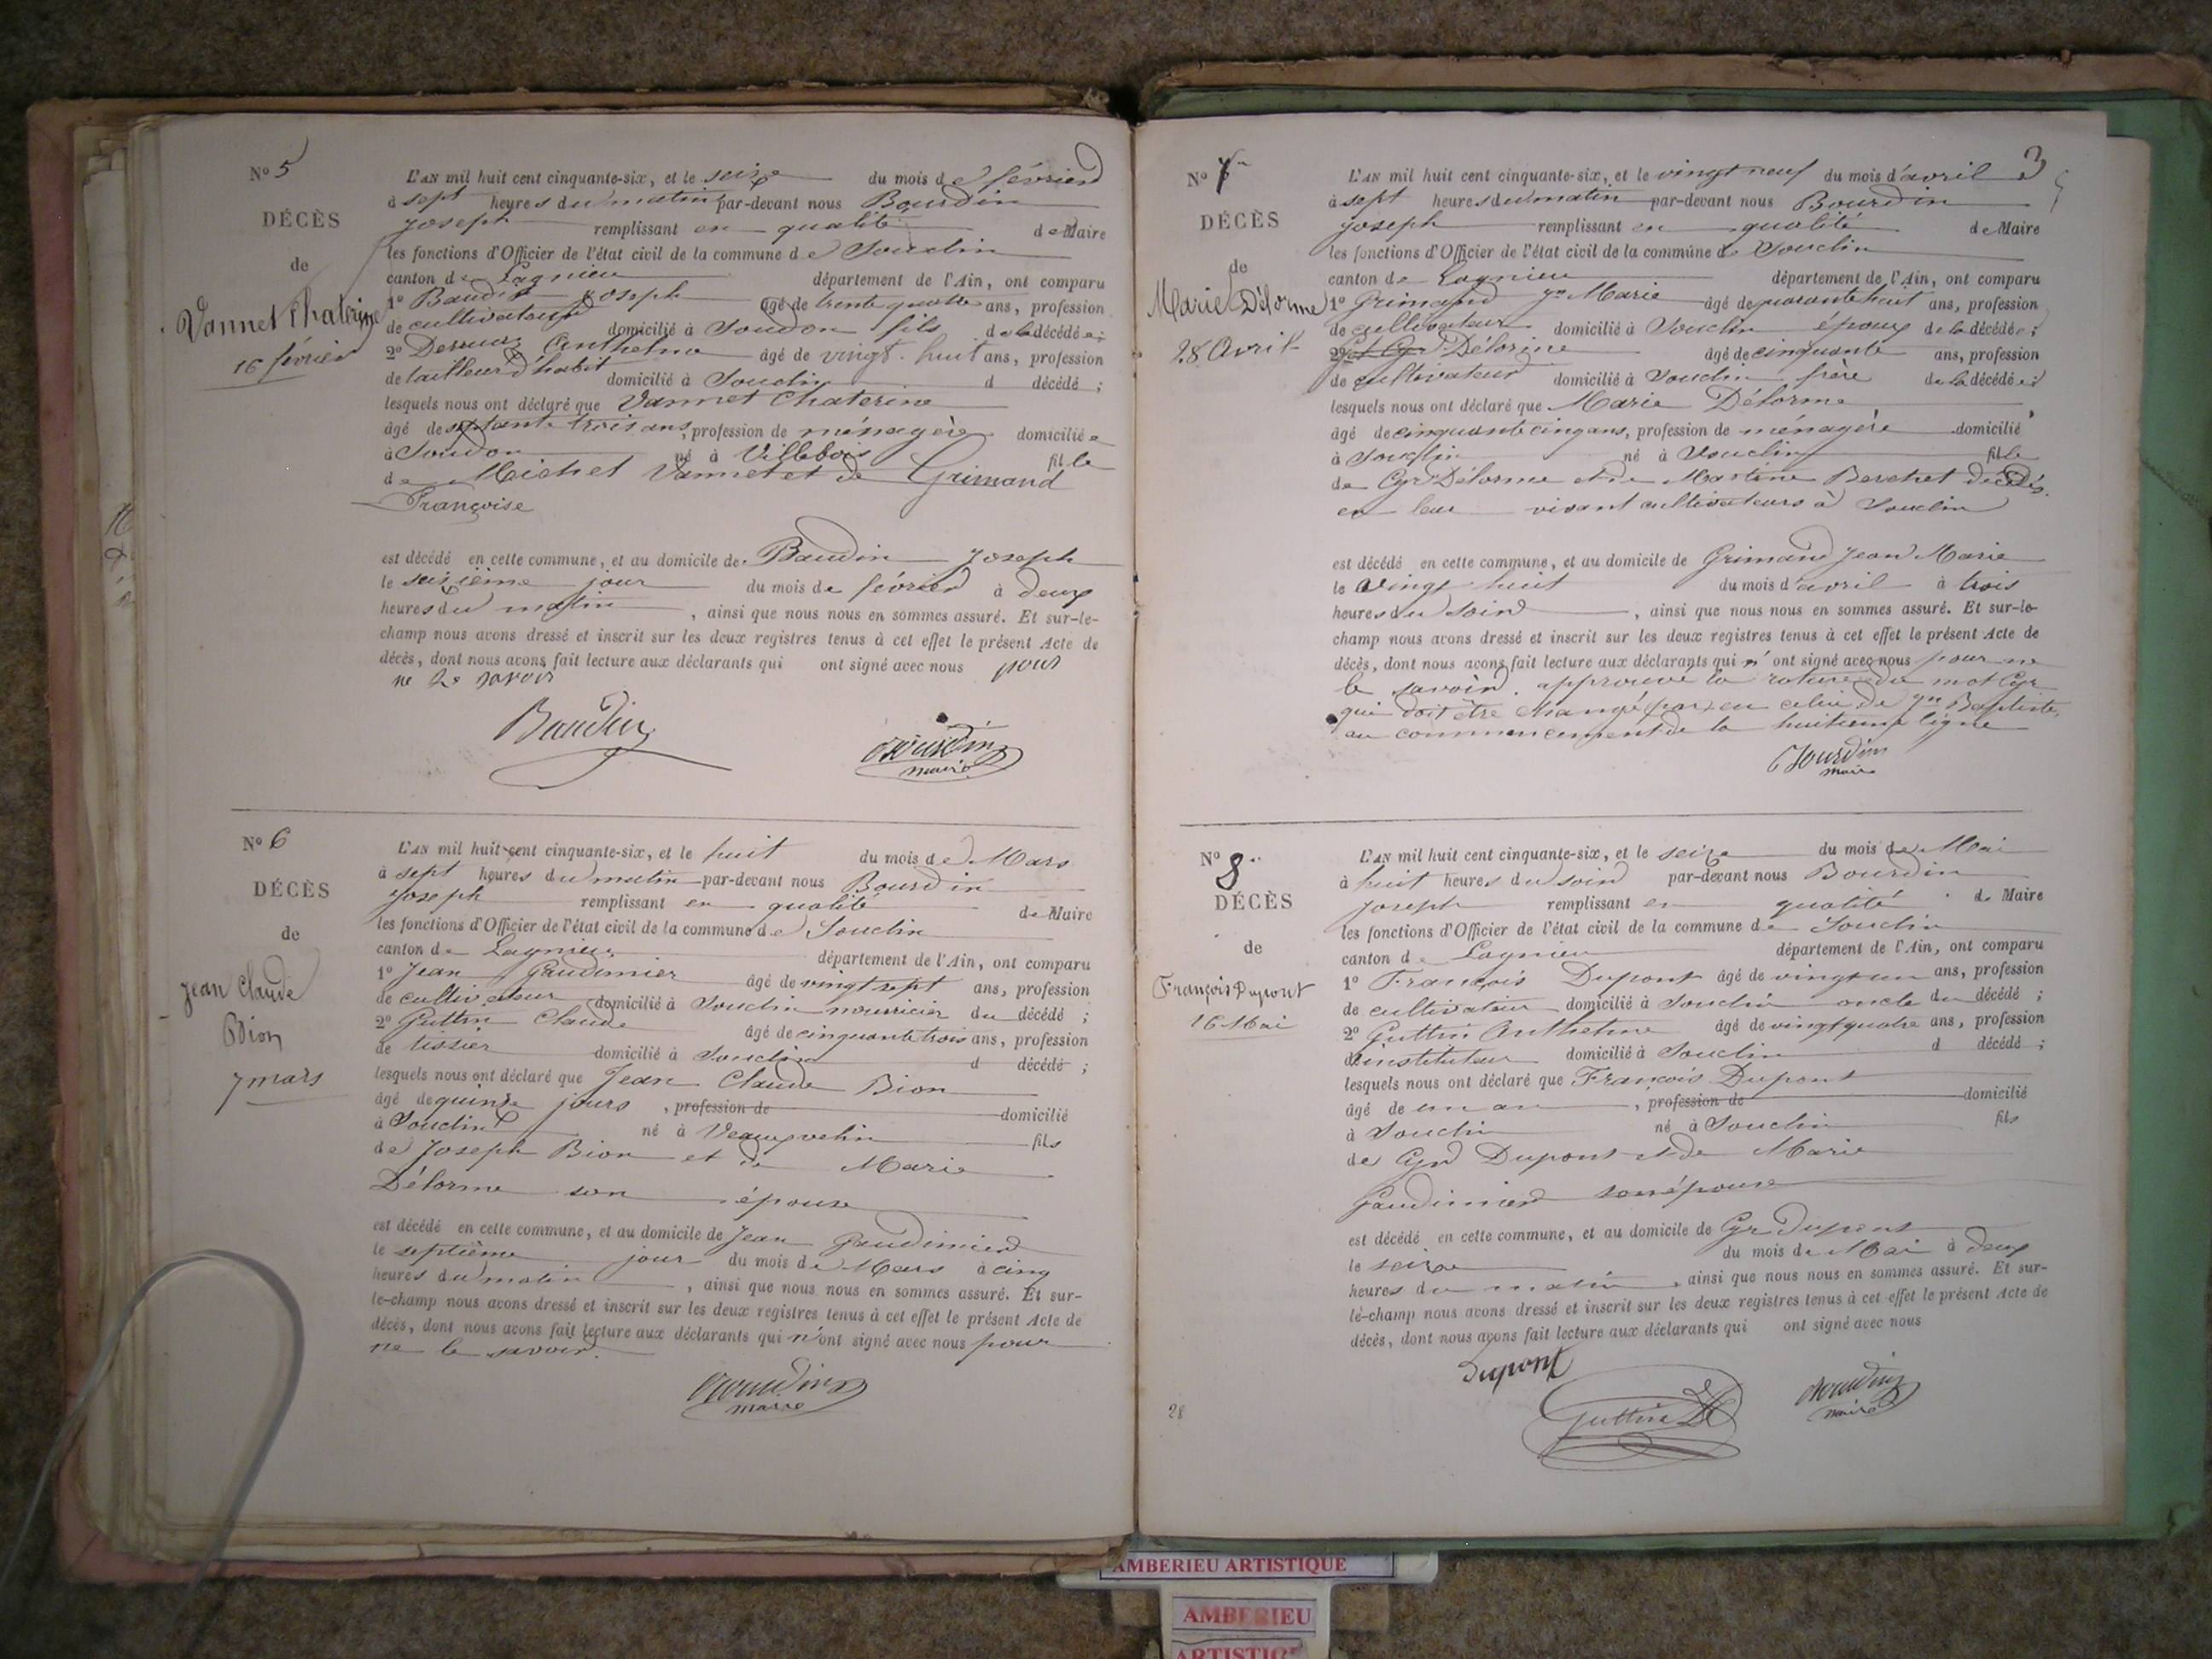 No 5
DÉCÈS
de
Vannet Chaterine
16 février
L'AN mil huit cent cinquante-six, et le seize du mois de février
à sept heures du matin par-devant nous Bourdin
Joseph remplissant en qualité de Maire
les fonctions d'Officier de l'état civil de la commune de Souclin
canton de Lagnieu département de l'Ain, ont comparu
1o Baudin Joseph âgé de trente quatre ans, profession
de cultivateur domicilié à Soudon fils de la décédée;
2o Anthelme âgé de vingt-huit ans, profession
de tailleur d'habit domicilié à Souclin d décédé;
lesquels nous ont déclaré que Vannet Chaterine
âgé de septante trois ans, profession de ménagère domiciliée
à Soudon né à Villebois fille
de Michel Vannet et de Grimand
Françoise
est décédé en cette commune, et au domicile de Baudin Joseph
le seizième jour du mois de février à deux
heures du matin, ainsi que nous nous en sommes assuré. Et sur-le-
champ nous avons dressé et inscrit sur les deux registres tenus à cet effet le présent Acte de
décès, dont nous avons fait lecture aux déclarants qui ont signé avec nous pour
ne le savoir
Baudin
Bourdin
maire
No 6
DÉCÈS
de
Jean Claude
Bion
7 mars
L'AN mil huit cent cinquante-six, et le huit du mois de Mars
à sept heures du matin par-devant nous Bourdin
Joseph remplissant en qualité de Maire
les fonctions d'Officier de l'état civil de la commune de Souclin
canton de Lagnieu département de l'Ain, ont comparu
1o Jean Gaudimier âgé de vingt sept ans, profession
de cultivateur domicilié à Souclin nourricier du décédé;
2o Guttin Claude âgé de cinquante trois ans, profession
de tissier domicilié à Souclin d décédé;
lesquels nous ont déclaré que Jean Claude Bion
âgé de quinze jours, profession de domicilié
à Souclin né à fils
de Joseph Bion et de Marie
Délorme son épouse
est décédé en cette commune, et au domicile de Jean Gaudimier
le septième jour du mois de Mars à cinq
heures du matin, ainsi que nous nous en sommes assuré. Et sur-
le-champ nous avons dressé et inscrit sur les deux registres tenus à cet effet le présent Acte de
décès, dont nous avons fait lecture aux déclarants qui n'ont signé avec nous pour
ne le savoir.
Bourdin
maire
3
No 7
DÉCÈS
de
Marie Délorme
28 Avril
L'AN mil huit cent cinquante-six, et le vingt neuf du mois d'avril
à sept heures du matin par-devant nous Bourdin
Joseph remplissant en qualité de Maire
les fonctions d'Officier de l'état civil de la commune de Souclin
canton de Lagnieu département de l'Ain, ont comparu
1o Grimand Jn Marie âgé de quarante huit ans, profession
de cultivateur domicilié à Souclin époux de la décédée;
2o Cyr Délorme âgé de cinquante ans, profession
de cultivateur domicilié à Souclin frère de la décédée
lesquels nous ont déclaré que Marie Délorme
âgé de cinquante cinq ans, profession de ménagère domicilié
à Souclin né à Souclin fille
de Cyr Délorme et de Martine Berchet décédés
en leur vivant cultivateurs à Souclin
est décédé en cette commune, et au domicile de Grimand Jean Marie
le vingt huit du mois d'avril à trois
heures du soir, ainsi que nous nous en sommes assuré. Et sur-le-
champ nous avons dressé et inscrit sur les deux registres tenus à cet effet le présent Acte de
décès, dont nous avons fait lecture aux déclarants qui n'ont signé avec nous pour ne
le savoir. approuve la rature du mot Cyr
qui doit être changé en celui de Jn Baptiste
au commencement de la huitième ligne
Bourdin
maire
No 8
DÉCÈS
de
François Dupont
16 Mai
L'AN mil huit cent cinquante-six, et le seize du mois de Mai
à huit heures du soir par-devant nous Bourdin
Joseph remplissant en qualité de Maire
les fonctions d'Officier de l'état civil de la commune de Souclin
canton de Lagnieu département de l'Ain, ont comparu
1o François Dupont âgé de vingt un ans, profession
de cultivateur domicilié à Souclin oncle du décédé;
2o Guttin Anthelme âgé de vingt quatre ans, profession
d'instituteur domicilié à Souclin d décédé;
lesquels nous ont déclaré que François Dupont
âgé de un an, profession de domicilié
à Souclin né à Souclin fils
de Cyr Dupont et de Marie
Gaudimier son épouse
est décédé en cette commune, et au domicile de Cyr Dupont
le seize du mois de Mai à deux
heures du matin, ainsi que nous nous en sommes assuré. Et sur-
le-champ nous avons dressé et inscrit sur les deux registres tenus à cet effet le présent Acte de
décès, dont nous avons fait lecture aux déclarants qui ont signé avec nous
Dupont
Guttin
Bourdin
maire
28
AMBERIEU ARTISTIQUE
AMBERIEU
ARTISTIQUE